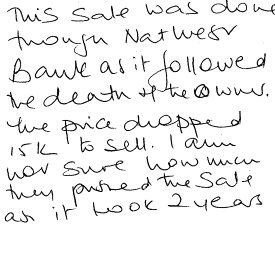 This sale was done
though Natwest
Bank as it followed
the death of the owner.
The price dropped
15K to sell. I am
not sure how much
they pushed the sale
as it took 2 years